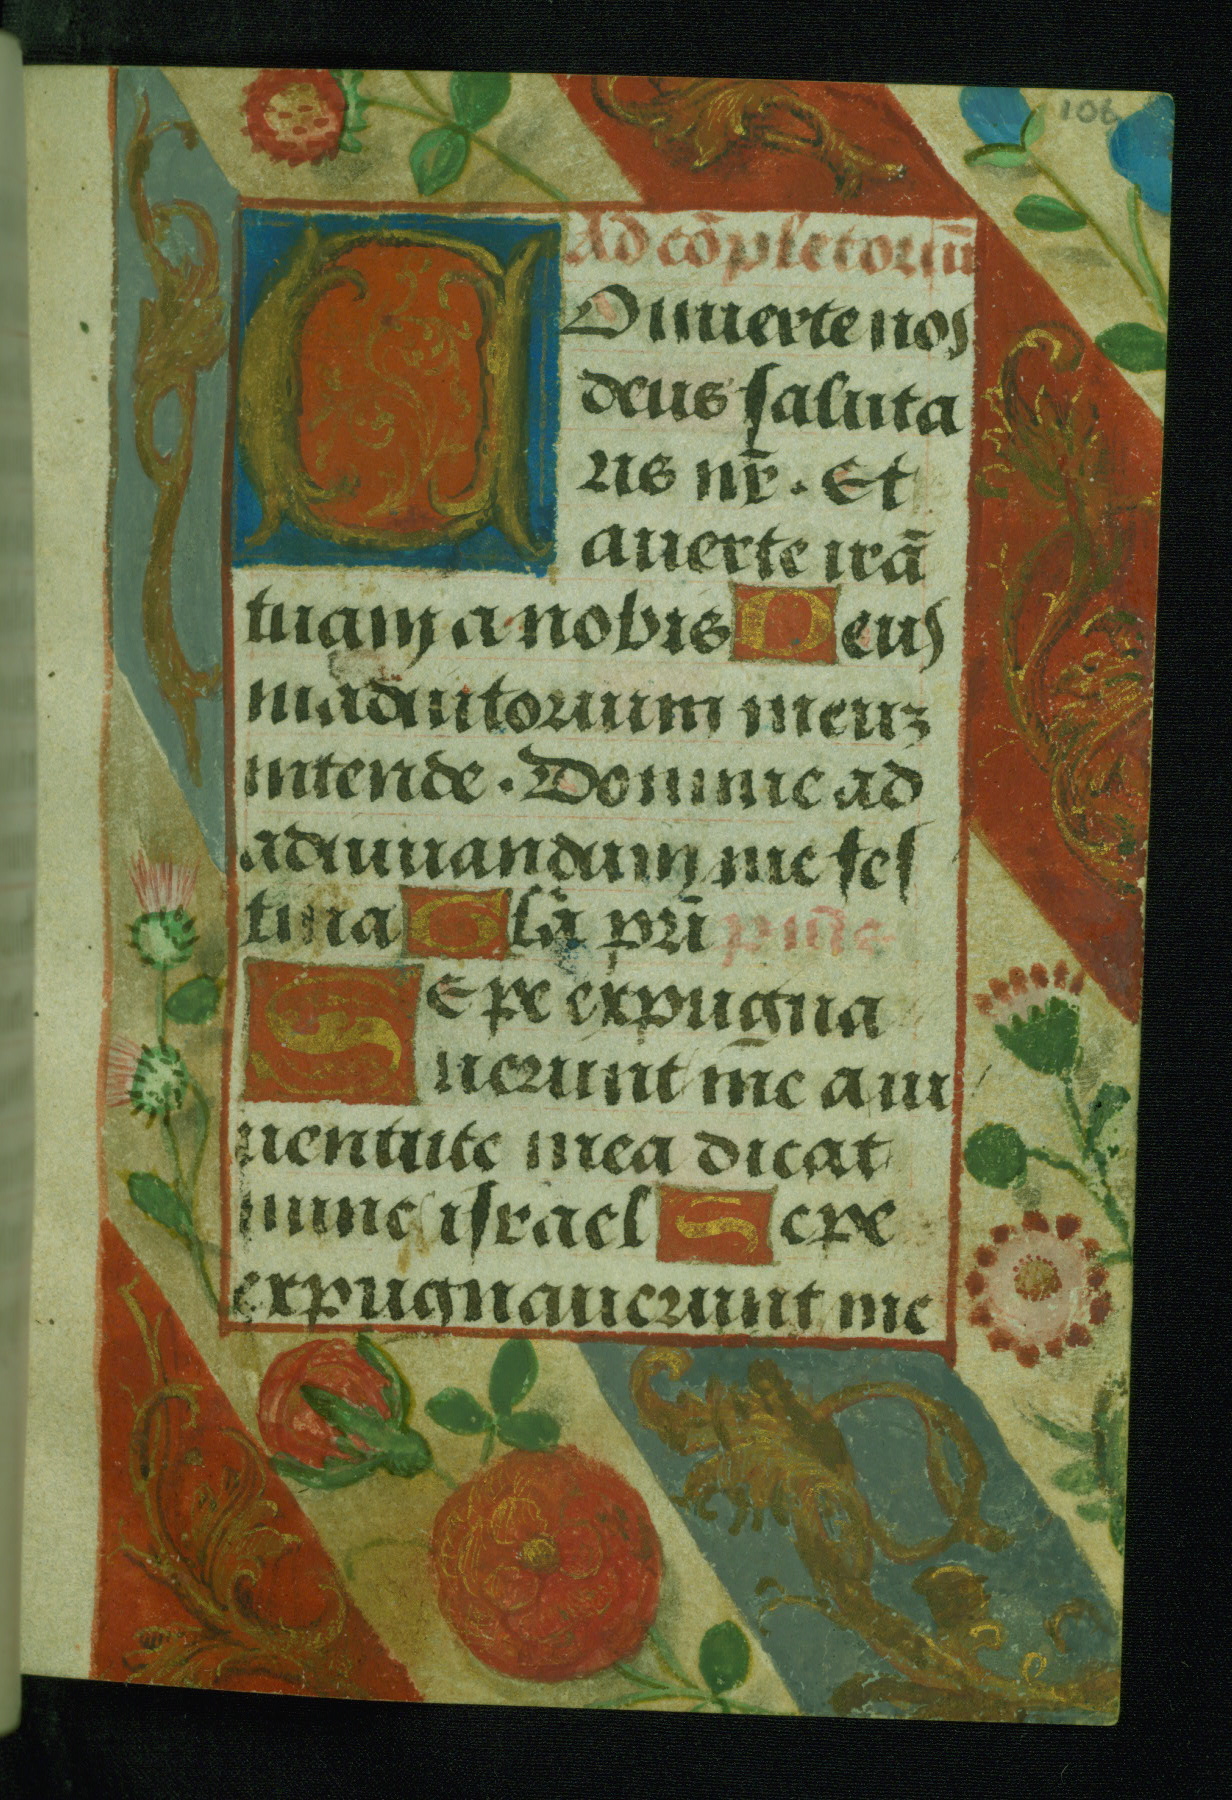 106
Ad cōpletoriū
COnuerte nos
deus saluta
ris nr̄. Et
auerte irā
tuam a nobis Deus
in adiutorium meuz
intende. Domine ad
adiuuandum me fes
tina Glā pri
Sepe expugna
uerunt me a iu
uentute mea dicat
nunc israel Sepe
expugnauerunt me